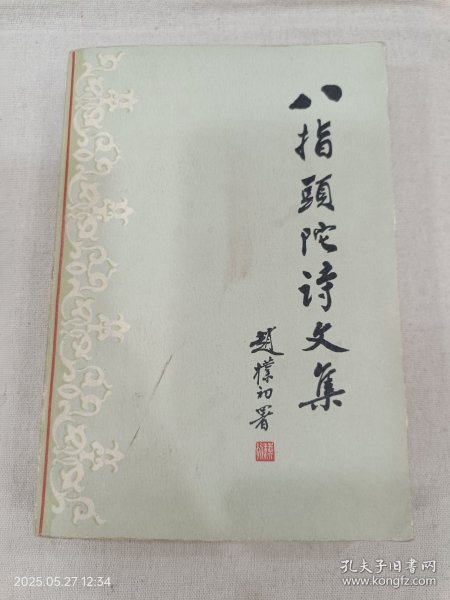 八指頭陀诗文集
趙樸初署
2025.05.27 12:34
孔夫子旧书网
www.kongfz.com